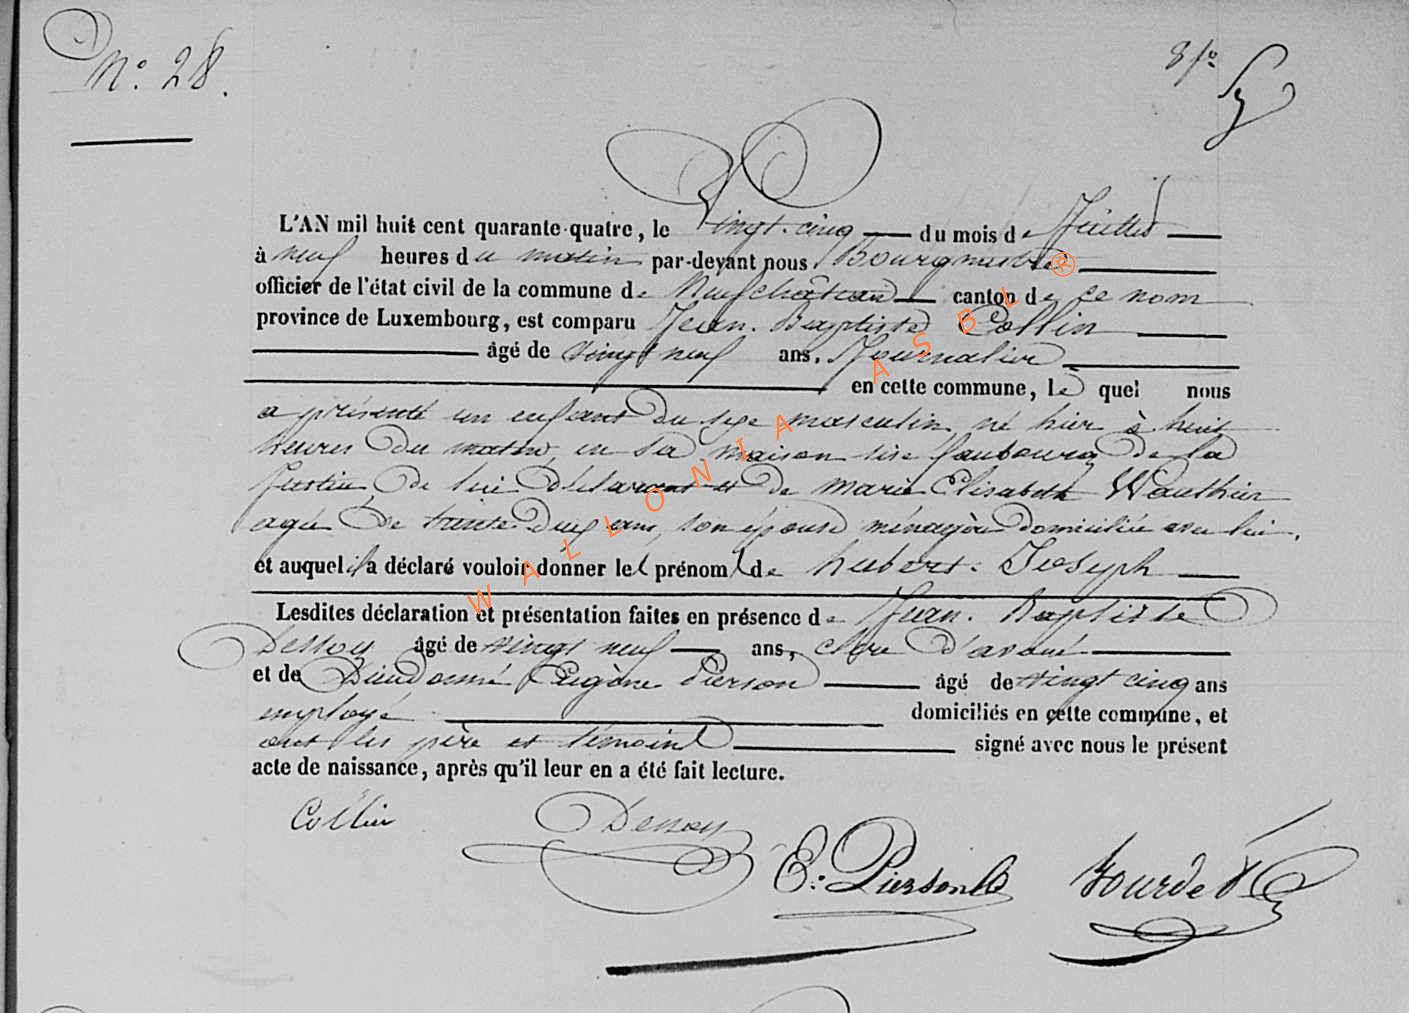 N° 28.
8 fo
L'AN mil huit cent quarante-quatre, le Vingt-cinq du mois de Juillet
à neuf heures du matin par-devant nous Bourgmestre
officier de l'état civil de la commune de Neufchâteau canton de ce nom
province de Luxembourg, est comparu Jean-Baptiste Collin
âgé de vingt neuf ans, Journalier
en cette commune, lequel nous
a présenté un enfant du sexe masculin, né hier à huit
heures du matin, en sa maison sise faubourg de la
Justice, de lui déclarant et de Marie Elisabeth Wauthier
agée de trente deux ans, son épouse ménagère domiciliée avec lui.
et auquel il a déclaré vouloir donner le prénom de hubert-Joseph
Lesdites déclaration et présentation faites en présence de Jean-Baptiste
Dessoy âgé de vingt neuf ans, clerc d'avoué
et de Dieudonné Eugène Pierson âgé de vingt cinq ans
employé domiciliés en cette commune, et
ont les père et témoins signé avec nous le présent
acte de naissance, après qu'il leur en a été fait lecture.
Collin Dessoy
E. Pierson
WALLONIA ASBL ®